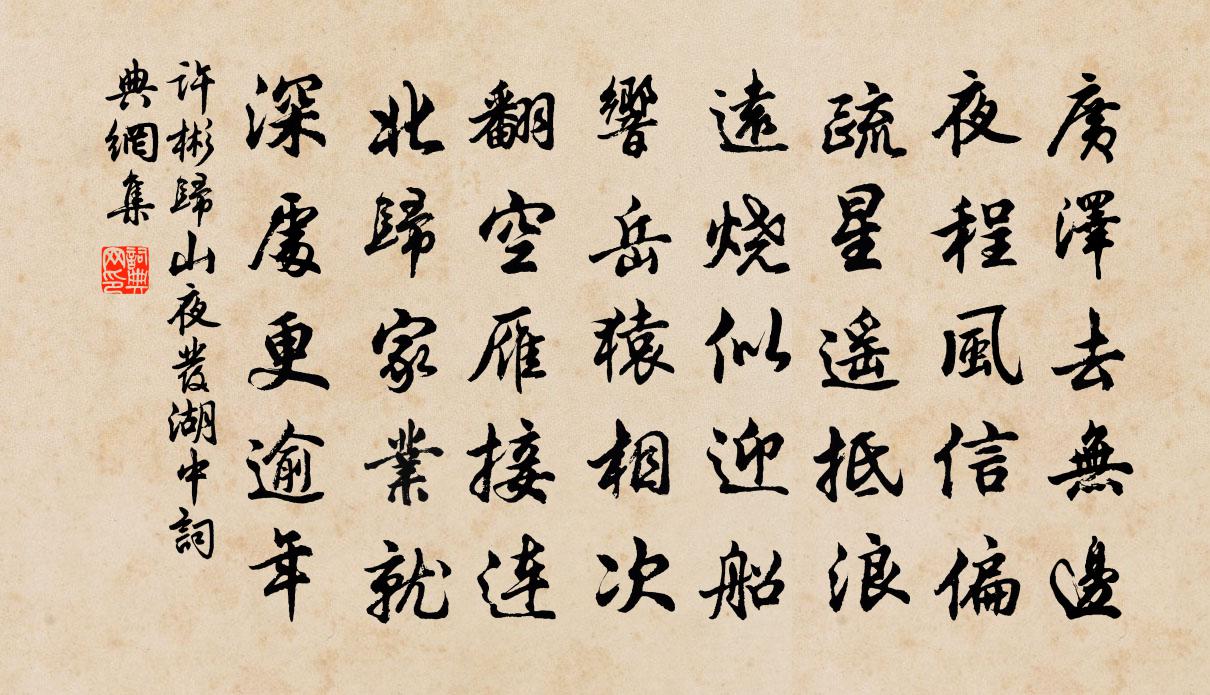 廣澤去無邊
夜程風信偏
疏星遥抵浪
遠烧似迎船
響岳猿相次
翻空雁接連
北歸家業就
深處更逾年
許彬歸山夜發湖中詞
典網集
詞典
网印